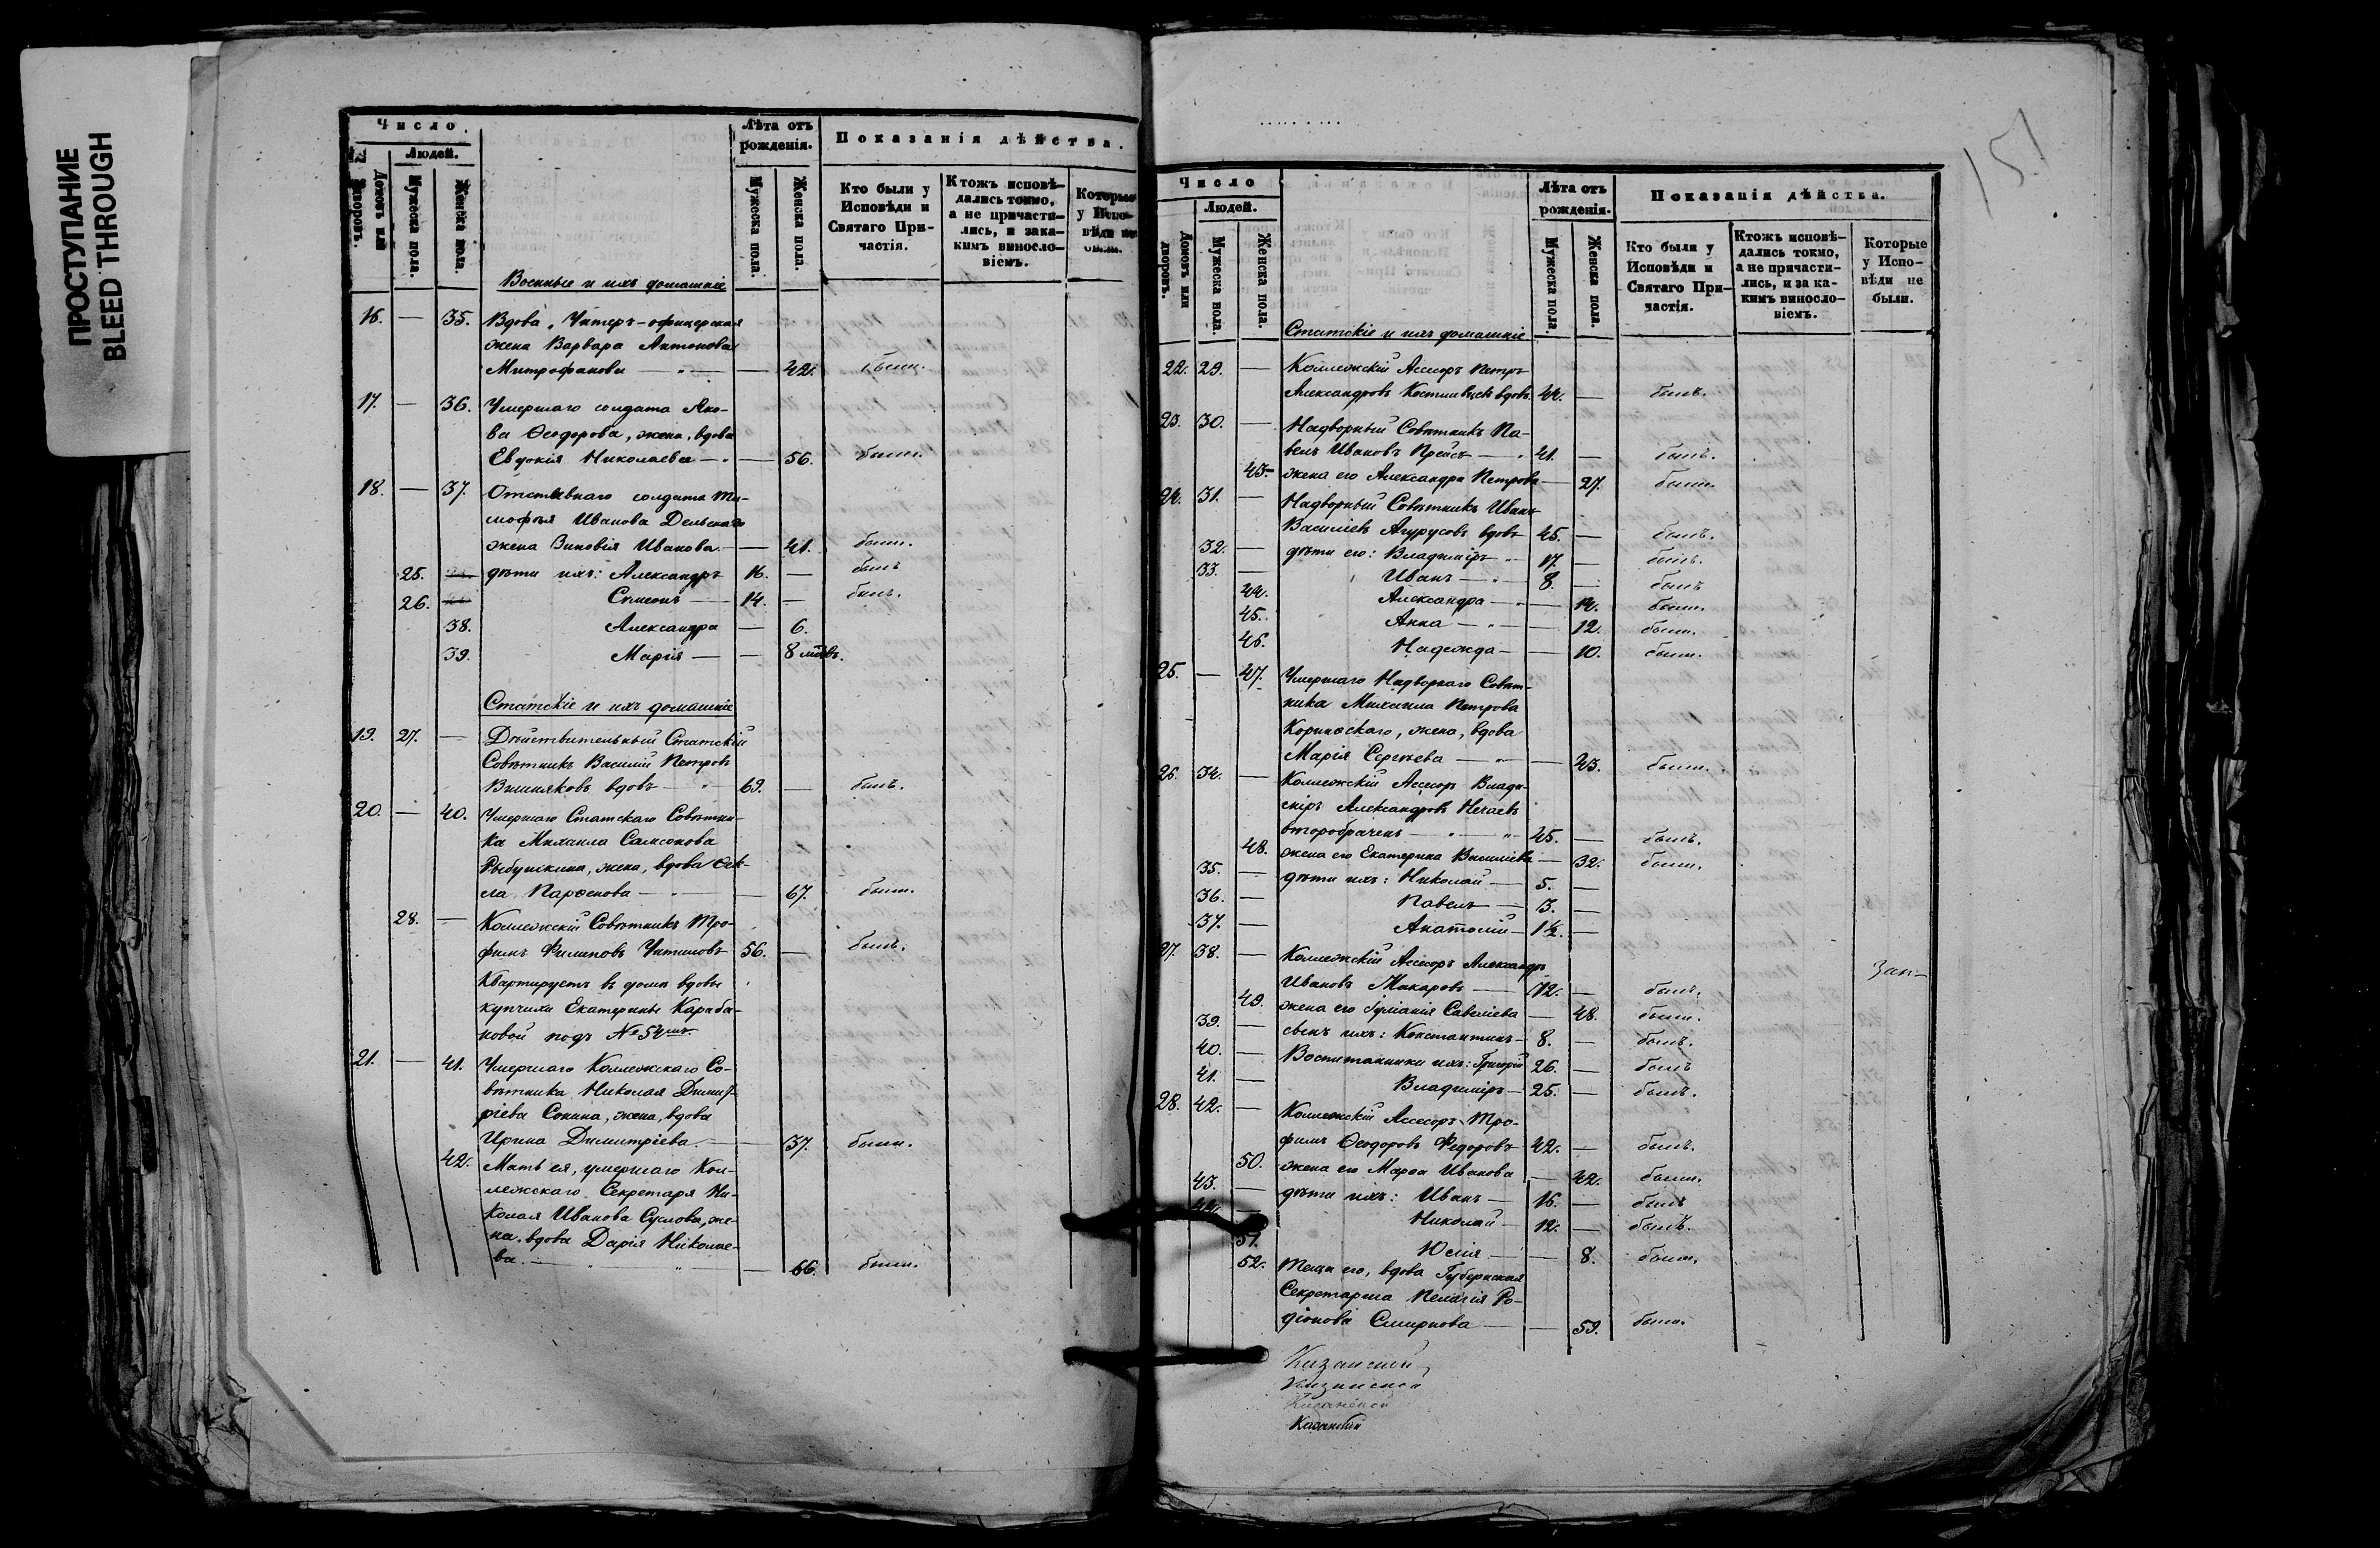 ПРОСТУПАНИЕ
BLEED THROUGH
Число.
Людей.
Домовъ или дворовъ.
Мужеска пола.
Женска пола.
Лѣта отъ рожденія.
Мужеска пола.
Женска пола.
Показанія дѣйства.
Кто были у Исповѣди и Святаго Причастія.
Ктожъ исповѣдались токмо, а не причастились, и за какимъ винословіемъ.
Которые у Исповѣди не были.
Военные и ихъ домашніе
16. — 35. Вдова, Унтеръ-офицерская
жена Варвара Антонова
Митрофанова — " — — 42. были.
17. — 36. Умершаго солдата Яко-
ва Ѳеодорова, жена, вдова
Евдокія Николаева — " — 56. были.
18. — 37. Отставнаго солдата Ти-
моѳея Иванова Дельскаго
жена Зиновія Иванова — — 41. были.
25. — дѣти ихъ: Александръ 16. — былъ
26. — Симеонъ — 14. — былъ.
38. Александра — 6.
39. Марія — — 8 мѣсв.
Статскіе и ихъ домашніе
19. 27. — Дѣйствительный Статскій
Совѣтникъ Василій Петровъ
Вишняковъ вдовъ — " — 69. — былъ.
20. — 40. Умершаго Статскаго Совѣтни-
ка Михаила Самсонова
Рыбушкина, жена, вдова Ѳек-
ла Парѳенова — " — — 67. были.
28. — Коллежскій Совѣтникъ Тро-
фимъ Филиповъ 56. — былъ.
Квартируетъ въ домѣ вдовы
купчихи Екатерины Караба-
новой подъ № 54мъ.
21. — 41. Умершаго Коллежскаго Со-
вѣтника Николая Димит-
ріева Сонина, жена, вдова
Ирина Димитріева. — — 37. были.
42. Мать ея, умершаго Кол-
лежскаго Секретаря Ни-
колая Иванова Суслова, же-
на, вдова Дарія Николае-
ва. — " — " — 66. были.
151
Число
Людей.
Домовъ или дворовъ.
Мужеска пола.
Женска пола.
Лѣта отъ рожденія.
Мужеска пола.
Женска пола.
Показанія дѣйства.
Кто были у Исповѣди и Святаго Причастія.
Ктожъ исповѣдались токмо, а не причастились, и за какимъ винословіемъ.
Которые у Исповѣди не были.
Статскіе и ихъ домашніе
22. 29. — Коллежскій Ассесоръ Петръ
Александровъ вдовъ. 44. — былъ.
23. 30. — Надворный Совѣтникъ Па-
велъ Ивановъ Прейсъ — " 41. — былъ.
43. жена его Александра Петрова — 27. были.
24. 31. — Надворный Совѣтникъ Иванъ
Василіевъ вдовъ 45. — былъ.
32. — дѣти его: Владиміръ " 17. — былъ.
33. — Иванъ — " 8. — былъ
44. Александра — " — 14. были.
45. Анна — " — — 12. были.
46. Надежда — — 10. были.
25. — 47. Умершаго Надворнаго Совѣт-
ника Михаила Петрова
Коринѳскаго, жена, вдова
Марія Сергѣева — " — — 43. были.
26. 34. — Коллежскій Ассесоръ Влади-
міръ Александровъ Нечаевъ
второбраченъ — " — " 45. — былъ.
48. жена его Екатерина Василіева — 32. были.
35. — дѣти ихъ: Николай — 5. —
36. — Павелъ — 3. —
37. — Анатолій — 1½. —
27. 38. — Коллежскій Ассесоръ Александръ
Ивановъ Макаровъ — 72. — былъ.
Зап—
49. жена его Іуліанія Савеліева — 48. были.
39. — сынъ ихъ: Константинъ — 8. — былъ.
40. — Воспитанники ихъ: Григорій 26. — былъ
41. — Владиміръ — 25. — былъ.
28. 42. — Коллежскій Ассесоръ Тро-
фимъ Ѳеодоровъ Федоровъ 42. — былъ.
50. жена его Марѳа Иванова — 42. были.
43. — дѣти ихъ: Иванъ — 16. — былъ
44. — Николай — 12. — былъ.
51. Юлія — — 8. были.
52. Теща его, вдова Губернская
Секретарша Пелагія Ро-
діонова Смирнова — — 59. были.
Казанской
Казанской
Казанской
Казанской